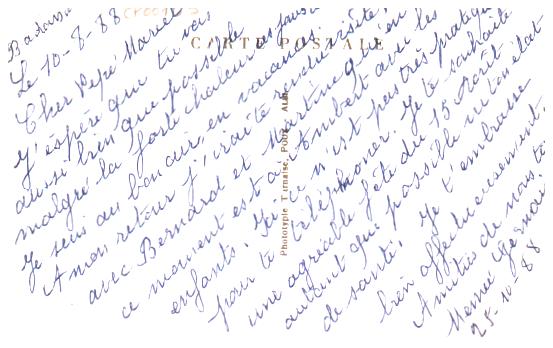 Le 10-8-88
CARTE POSTALE
Cher Pépé Marcel
J'espère que tu vas
aussi bien que possible
malgré la forte chaleur
Je suis au bon air, en vacances
A mon retour j'irai te rendre visite,
avec Bernard et Martine qui en
ce moment est à Ambert avec les
enfants. Ici ce n'est pas très pratique
pour te téléphoner. Je te souhaite
une agréable fête du 15 Août
autant que possible vu ton état
de santé. Je t'embrasse
bien affectueusement.
Amitiés de nous
25-10-88
Phototypie